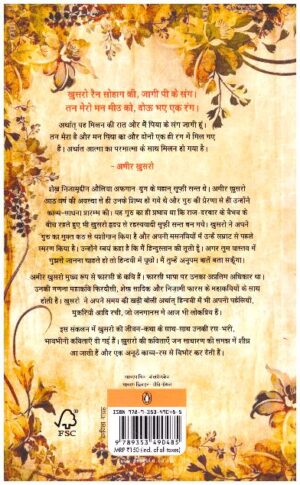 ख़ुसरो रैन सोहाग की, जागी पी के संग।
तन मेरो मन मीउ को, दोऊ भए एक रंग।
अर्थात् यह मिलन की रात और मैं पिया के संग जागी हूं।
तन मेरा है और मन पिया का और दोनों एक ही रंग में मिल गए
हैं। अर्थात आत्मा का परमात्मा के साथ मिलन हो गया है।
- अमीर ख़ुसरो
शेख़ निजामुद्दीन औलिया अफगान युग के महान सूफी सन्त थे। अमीर ख़ुसरो
आठ वर्ष की अवस्था से ही उनके शिष्य हो गये थे और गुरु की प्रेरणा से ही उन्होंने
काव्य-साधना प्रारम्भ की। यह गुरु का ही प्रभाव था कि राज-दरबार के वैभव के
बीच रहते हुए भी ख़ुसरो हृदय से रहस्यवादी सूफी सन्त बन गये। ख़ुसरो ने अपने
गुरु का मुक्त कंठ से यशोगान किया है और अपनी मसनवियों में उन्हें सम्राट से पहले
स्मरण किया है। उन्होंने स्वयं कहा है कि मैं हिन्दुस्तान की तूती हूं। अगर तुम वास्तव में
मुझसे जानना चाहते हो तो हिन्दवी में पूछो। मैं तुम्हें अनुपम बातें बता सकूँगा।
अमीर ख़ुसरो मुख्य रूप से फारसी के कवि हैं। फारसी भाषा पर उनका अप्रतिम अधिकार था।
उनकी गणना महाकवि फिरदौसी, शेख़ सादिक और निजामी फारस के महाकवियों के साथ
होती है। ख़ुसरो ने अपने समय की खड़ी बोली अर्थात् हिन्दवी में भी अपनी पहेलियां,
मुकरियां आदि रची, जो जनमानस में आज भी लोकप्रिय हैं।
इस संकलन में ख़ुसरो की जीवन-कथा के साथ-साथ उनकी रस-भरी,
भावभीनी कविताएं दी गई हैं। ख़ुसरो की कविताएँ जन साधारण की समझ में शीघ्र
आ जाती हैं और एक अनूठे काव्य-रस से विभोर कर देती हैं।
FSC
ISBN 978-9-353-49048-5
9 789353 490485
MRP ₹150 (incl. of all taxes)